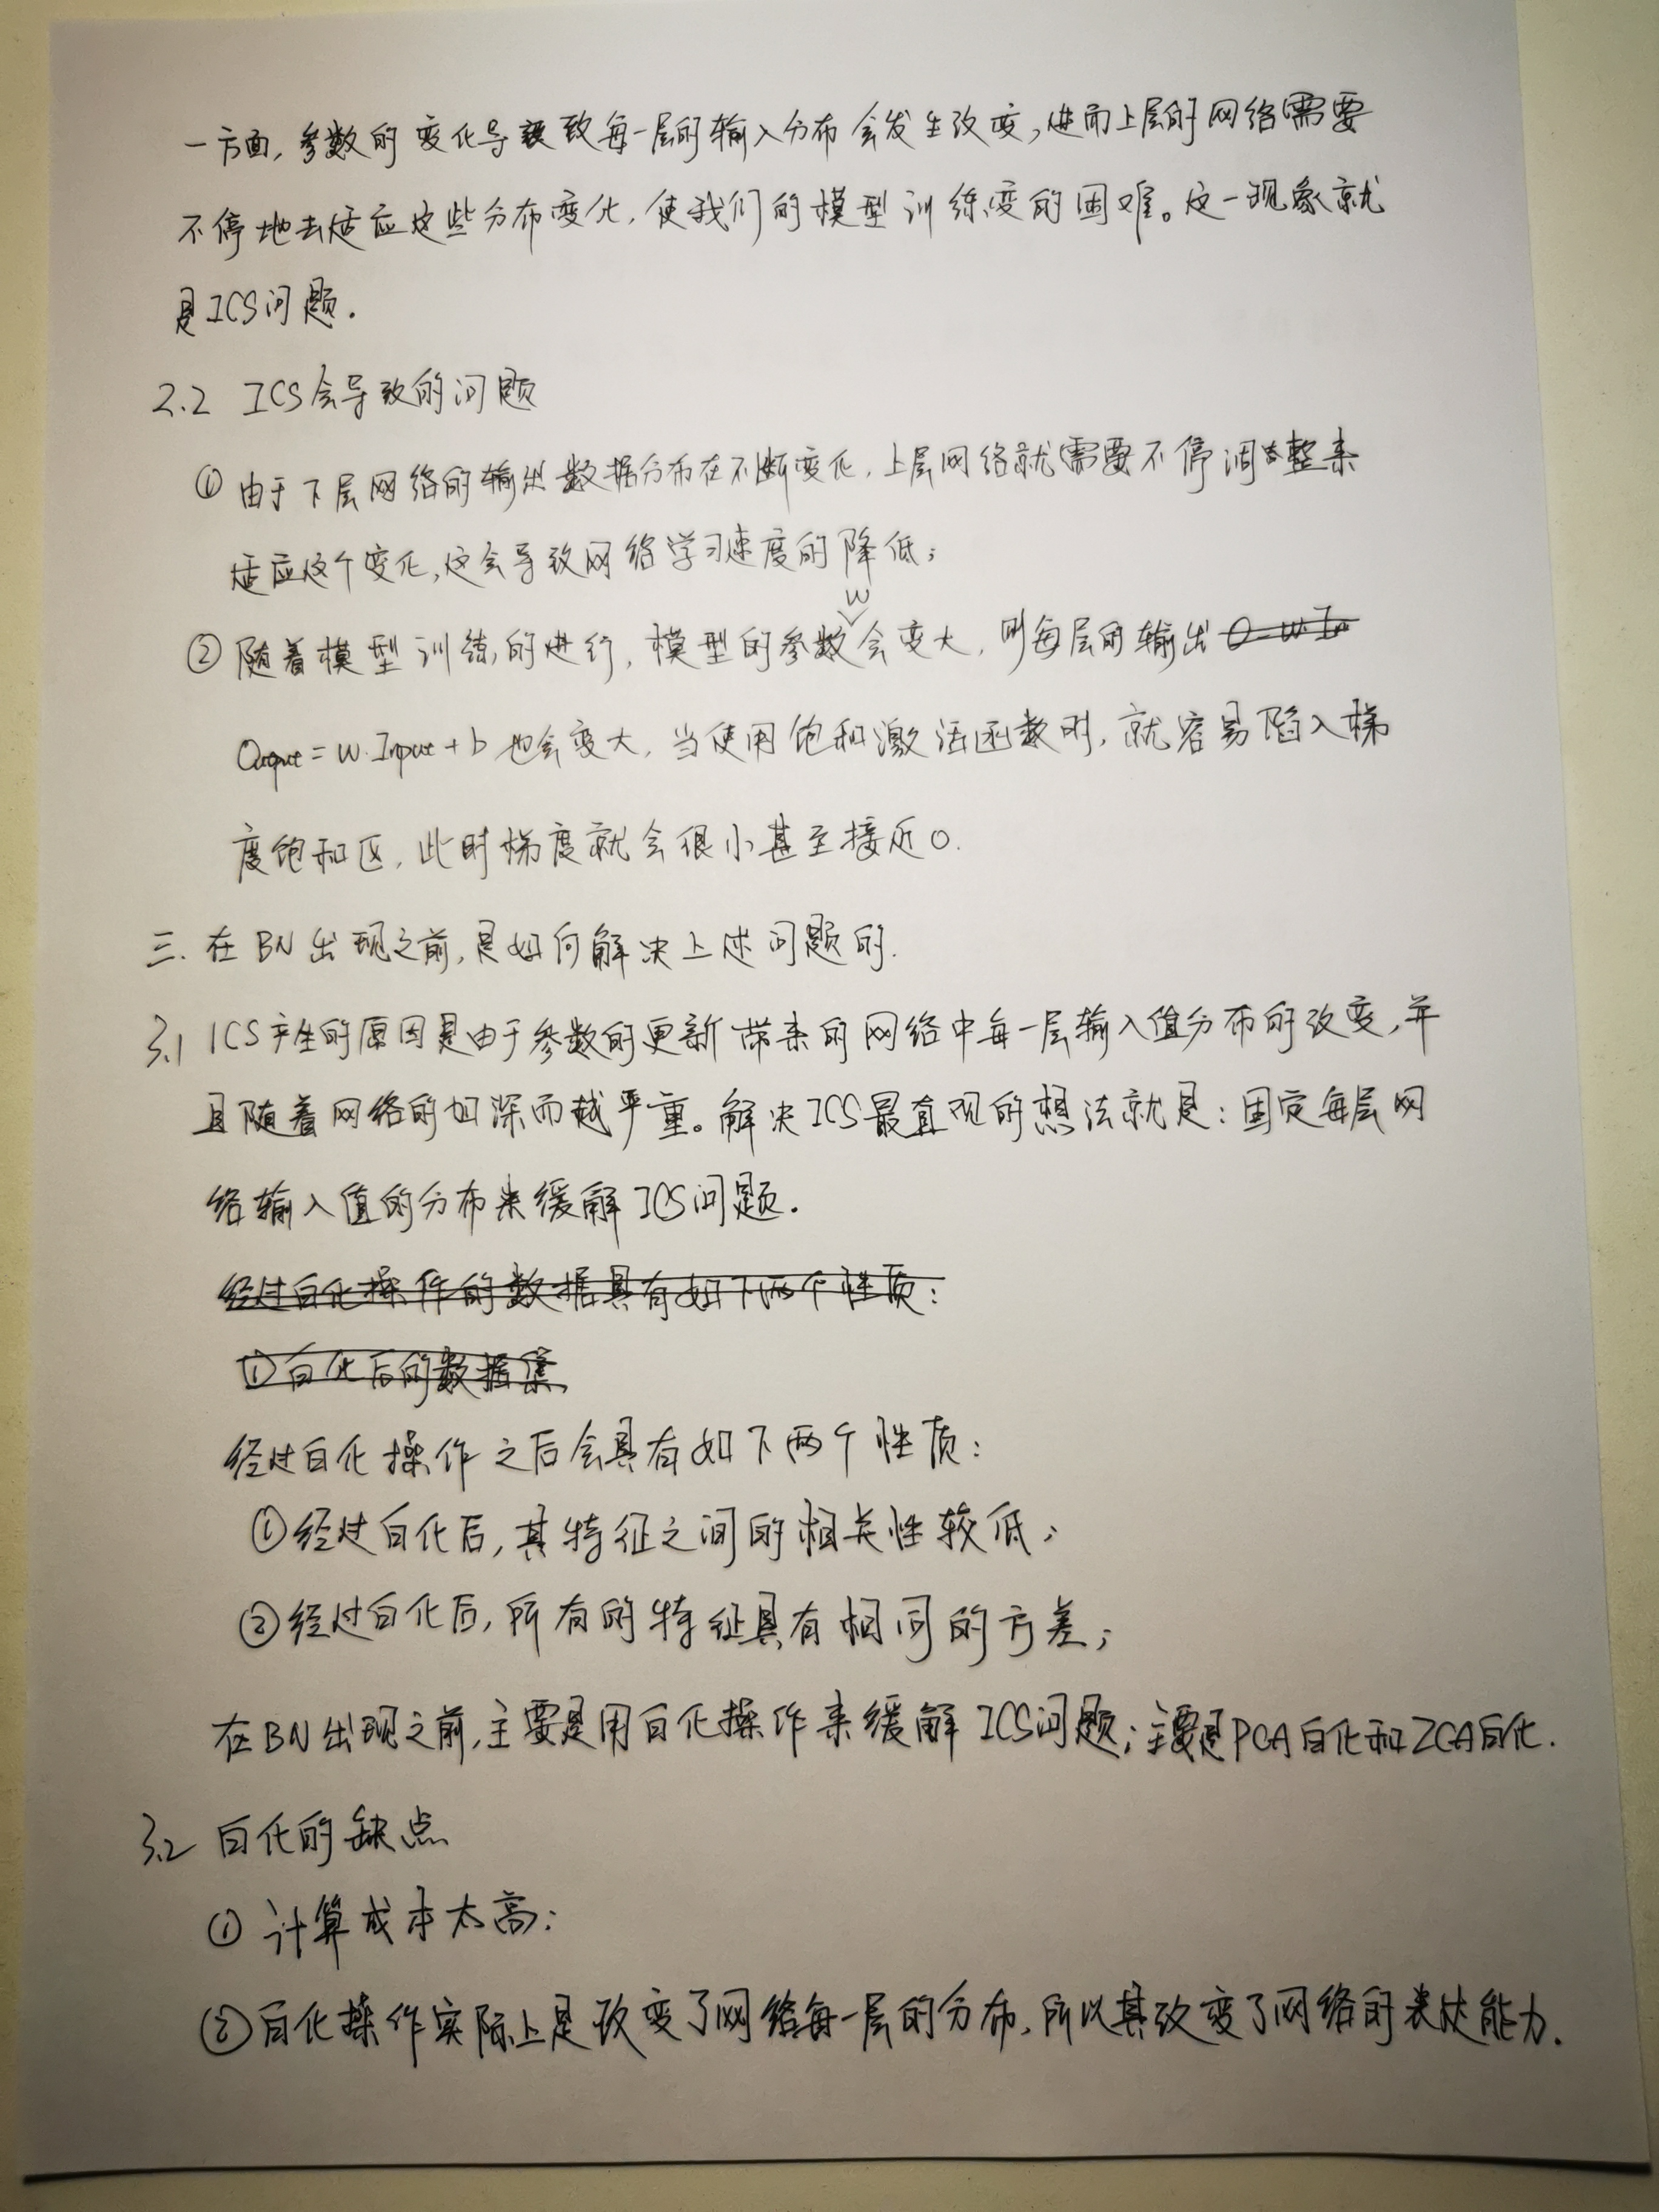 一方面,参数的变化导致每一层的输入分布会发生改变,进而上层的网络需要
不停地去适应这些分布变化,使我们的模型训练变的困难。这一现象就
是ICS问题.
2.2 ICS会导致的问题
① 由于下层网络的输出数据分布在不断变化,上层网络就需要不停调整来
适应这个变化,这会导致网络学习速度的降低;
W
② 随着模型训练的进行,模型的参数会变大,则每层的输出
Ouput = W·Input + b 也会变大,当使用饱和激活函数时,就容易陷入梯
度饱和区,此时梯度就会很小甚至接近0.
三.在BN出现之前,是如何解决上述问题的.
3.1 ICS产生的原因是由于参数的更新带来的网络中每一层输入值分布的改变,并
且随着网络的加深而越严重。解决ICS最直观的想法就是:固定每层网
络输入值的分布来缓解ICS问题.
经过白化操作的数据具有如下两个性质:
①白化后的数据集
经过白化操作之后会具有如下两个性质:
①经过白化后,其特征之间的相关性较低;
②经过白化后,所有的特征具有相同的方差;
在BN出现之前,主要是用白化操作来缓解ICS问题;主要是PCA白化和ZCA白化.
3.2 白化的缺点
① 计算成本太高;
②白化操作实际上是改变了网络每一层的分布,所以其改变了网络的表达能力.